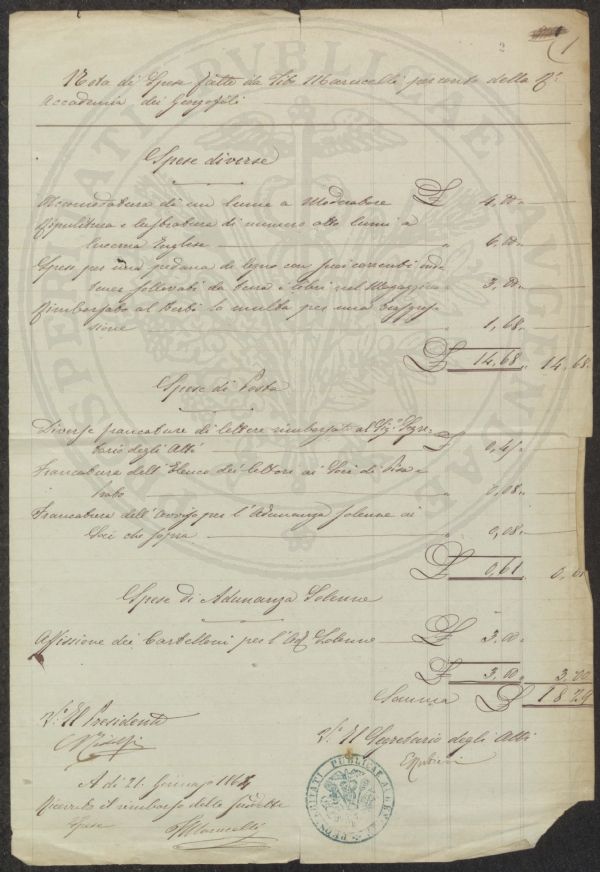 1
2
Nota di Spese fatte da Tito Marucelli per conto della R.
Accademia dei Georgofili
Spese diverse
Accomodatura di un lume a Moderatore £ 4.00
Ripulitura e lustratura di numero otto lumi a
lucerna Inglese 6.00
Spese per una pedana di legno con suoi correnti
tener sollevati da terra i libri nel Magazzino 3.00
Rimborsato al Berti la multa per una trasgres-
sione 1,68
£ 14,68 14,68
Spese di Posta
Diverse francature di lettere rimborsate al Sigr. Segre-
tario degli Atti £ 0,45
Francatura dell'Elenco dei letture ai Soci di Pisa e
Prato 0,08
Francatura dell'Avviso per l'Adunanza Solenne ai
Soci che sopra 0,08
£ 0,61 0,61
Spese di Adunanza Solenne
Affissione dei Cartelloni per l'Ad. Solenne £ 3.00
£ 3.00 3.00
Somma £ 18 29
V. Il Presidente
Ridolfi
V. Il Segretario degli Atti
A dì 21. Giugno
Ricevuto il rimborso delle suddette
spese
TMarucelli
PROSPERITATI PUBLICAE AUGENDAE
PROSPERITATI PVBLICAE AVGENDAE